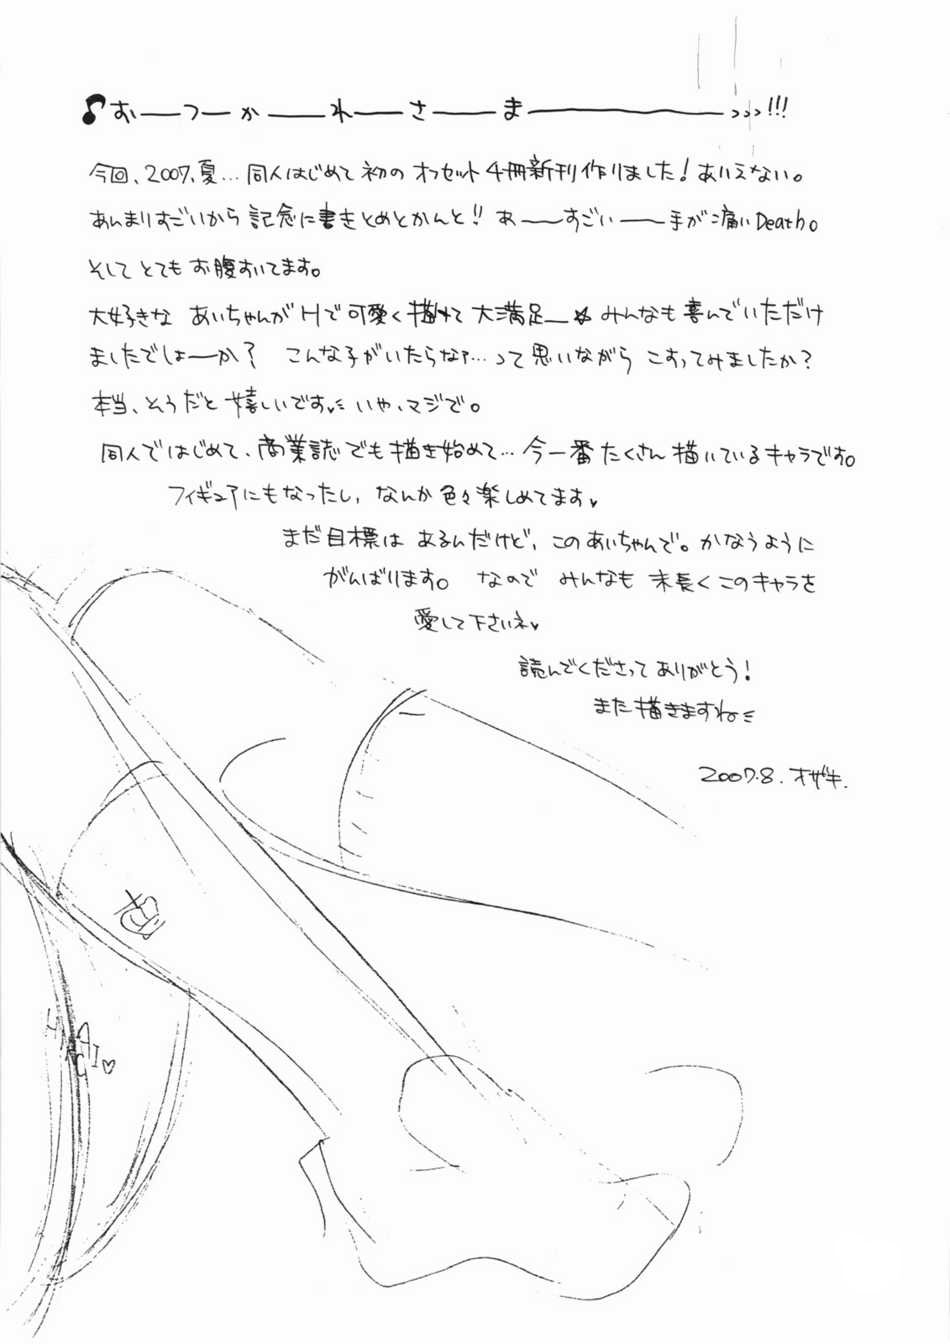 ♪おーつーかーれーさーまー>>>!!!
今回、2007、夏…同人はじめて初のオフセット4冊新刊作りました!ありえない。
あんまりすごいから記念に書きとめとかんと!!あーすごいー手が痛いDeath。
そしてとてもお腹すいてます。
大好きなあいちゃんがHで可愛く描けて大満足ー☆みんなも喜んでいただけ
ましたでしょーか?こんな子がいたらなァ…って思いながらこすってみましたか?
本当、そうだと嬉しいです いや、マジで。
同人ではじめて、商業誌でも描き始めて…今一番たくさん描いているキャラです。
フィギュアにもなったし、なんか色々楽しめてます♥
まだ目標はあるんだけど、このあいちゃんで。かなうように
がんばります。なのでみんなも末長くこのキャラを
愛して下さいネ♥
読んでくださってありがとう!
また描きますね
2007.8.オザキ.